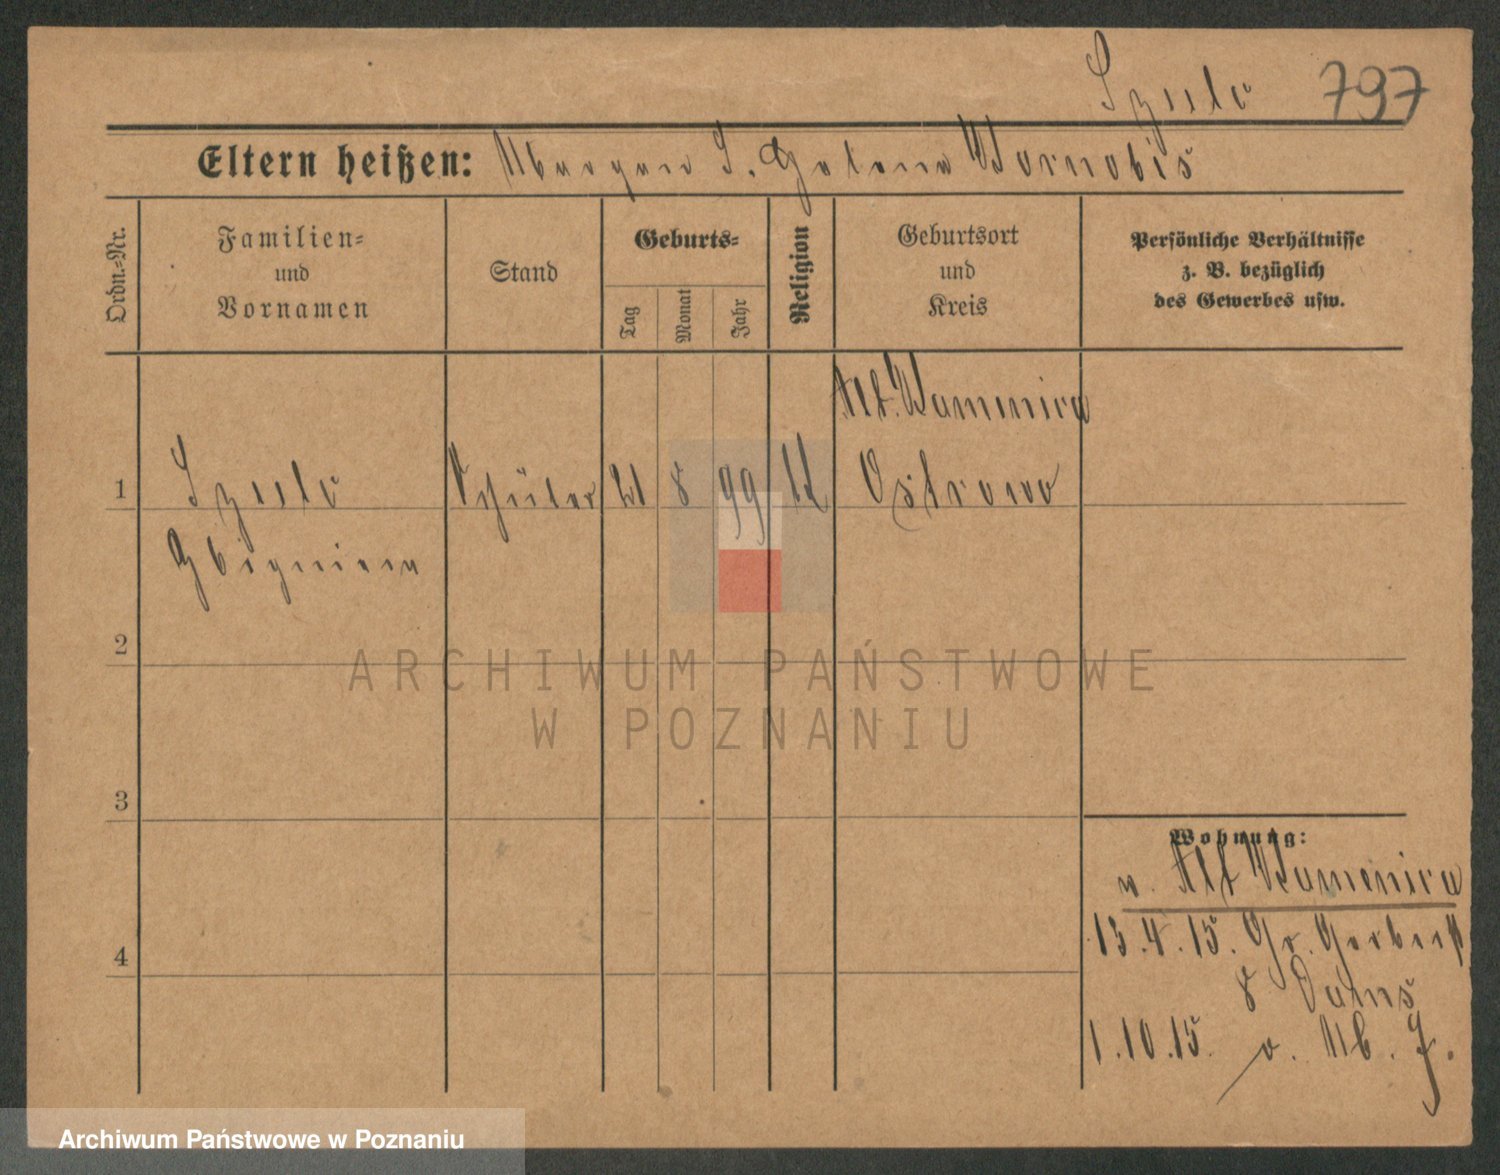 Szulc 797
Eltern heißen: S. Helena Wornobis
Ordn.-Nr.
Familien-
und
Vornamen
Stand
Geburts-
Tag
Monat
Jahr
Religion
Geburtsort
und
Kreis
Persönliche Verhältnisse
z. B. bezüglich
des Gewerbes usw.
Alt. Kamenica
1 Szulc Schüler 21 8 99 kl Ostrowo
Zbigniew
2
3
4
Wohnung:
v. Alt Kamenica
13.4.15. Gr. Gerberst
8
1.10.15. o. Ab. J.
ARCHIWUM PAŃSTWOWE
W POZNANIU
Archiwum Państwowe w Poznaniu